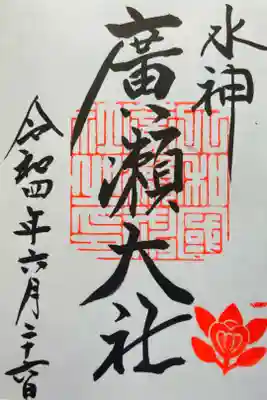 水神
廣瀬大社
令和四年六月二十六日